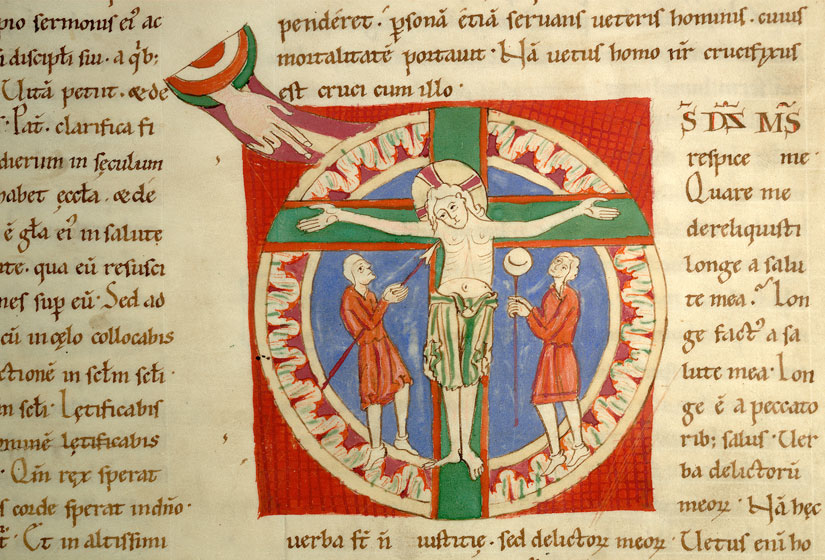 pio sermonis ei᷒ ac
ii discipłi sui · a q̃b;
Uitã petiit · & de
· Pat̃ · clarifica fi
dierum in sęculum
habet ęccła · & de
ẽ gła ei᷒ in salutę
te · qua eũ resusci
nes sup eũ · Sed ad
cũ in cęlo collocabis
ctionẽ in sełm sełi ·
m sełi · Lętificabis
mine lętificabis
· Qm̃ rex sperat
s corde sperat in dño ·
Et in altissimi
penderet · p̃sonã etiã seruans ueteris hominis · cuius
mortalitatẽ portauit · Nã uetus homo nr̃ crucifixus
est cruci cum illo ·
S̃ D̃S M̃S
respice me ·
Quare me
dereliquisti
longe a salu
te mea · Lon
ge fact᷒ a sa
lute mea · Lon
ge ẽ a peccato
rib; salus · Uer
ba delictorũ
meoꝝ · Nã hęc
uerba st̃ ñ iustitię · sed delictoꝝ meoꝝ · Uetus eni ho